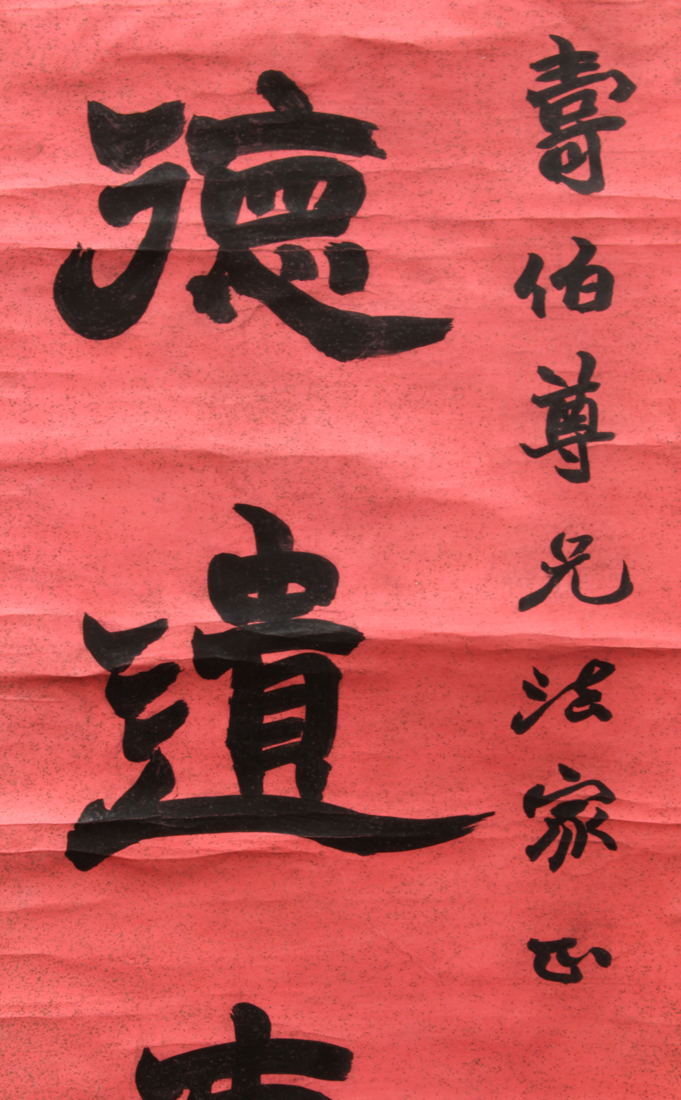 壽伯尊兄法家正
德遺